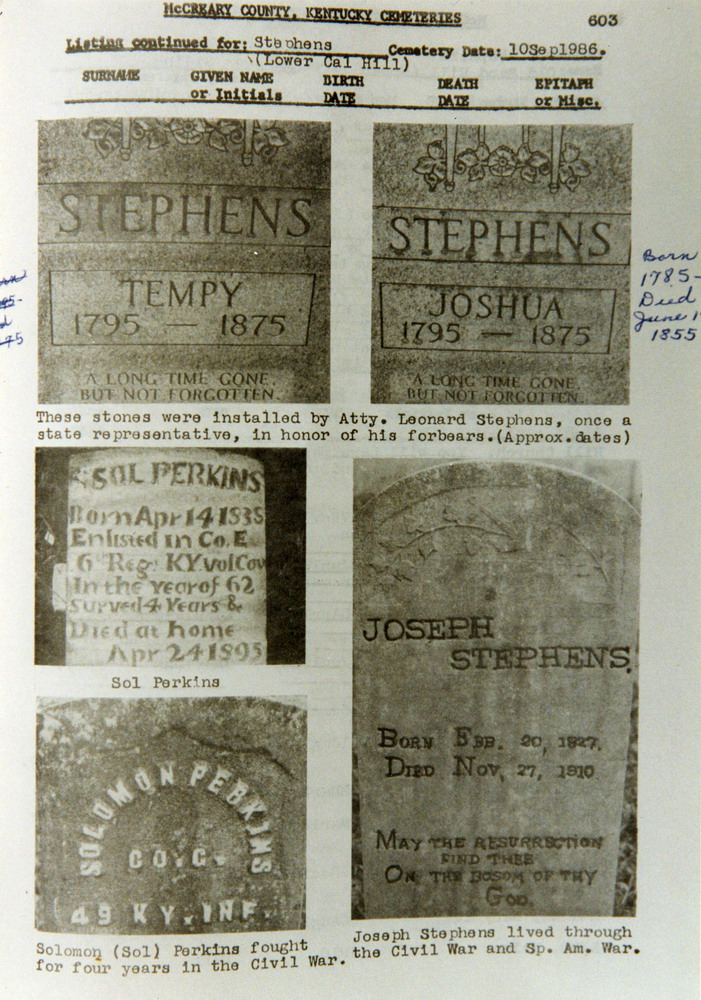 McCREARY COUNTY, KENTUCKY CEMETERIES
603
Listing continued for: Stephens
Cemetery Date: 10Sep1986.
(Lower Cal Hill)
SURNAME GIVEN NAME or Initials BIRTH DATE DEATH DATE EPITAPH or Misc.
STEPHENS
TEMPY
1795 — 1875
A LONG TIME GONE,
BUT NOT FORGOTTEN.
STEPHENS
JOSHUA
1795 — 1875
A LONG TIME GONE,
BUT NOT FORGOTTEN
Born
1785-
Died
June 1
1855
These stones were installed by Atty. Leonard Stephens, once a
state representative, in honor of his forbears.(Approx.dates)
SOL PERKINS
Born Apr 14 1835
Enlisted in Co. E
6 Reg. KY vol Cav
In the year of 62
Surved 4 Years &
Died at home
Apr 24 1895
Sol Perkins
SOLOMON PERKINS
CO. G.
49 KY. INF.
Solomon (Sol) Perkins fought
for four years in the Civil War.
JOSEPH
STEPHENS.
BORN FEB. 20, 1827.
DIED NOV. 27, 1910
MAY THE RESURRECTION
FIND THEE
ON THE BOSOM OF THY
GOD.
Joseph Stephens lived through
the Civil War and Sp. Am. War.